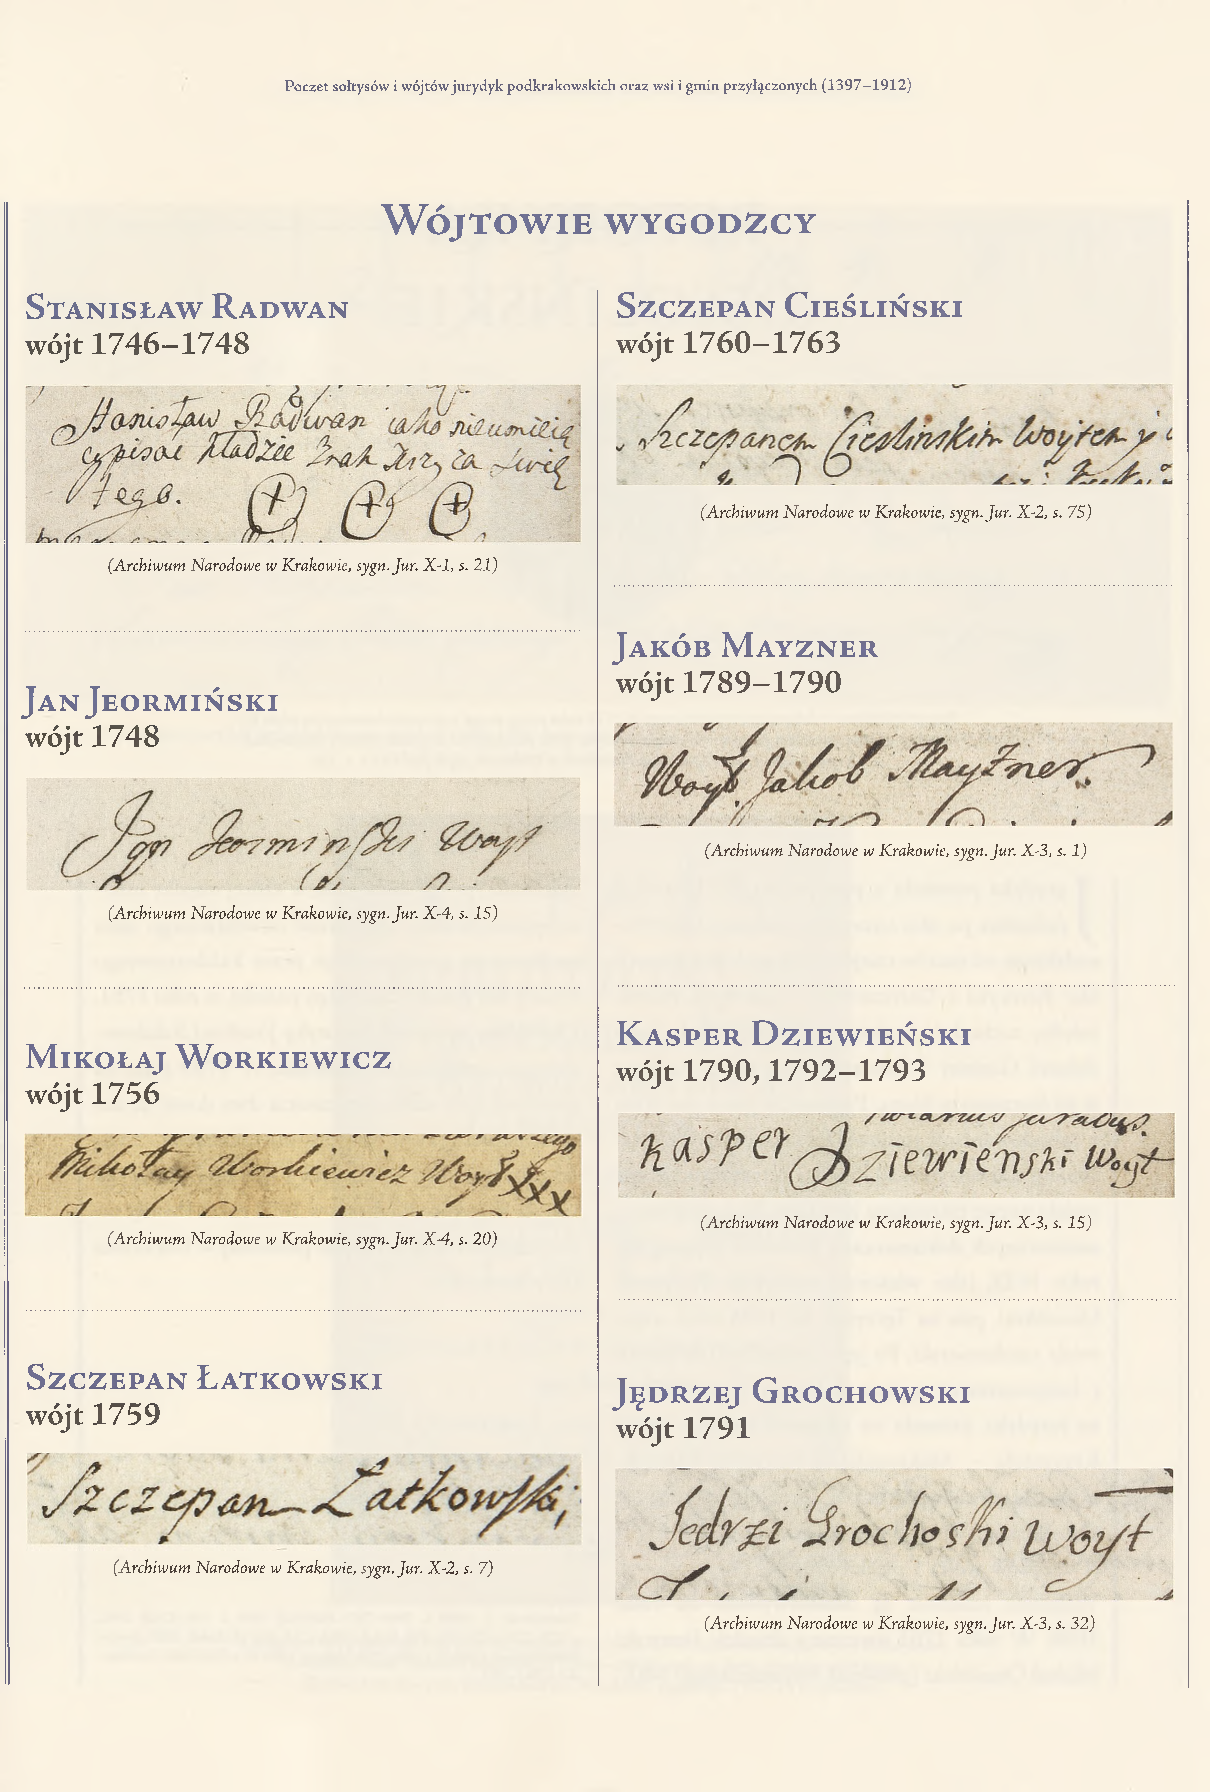 Poczet sołtysów i wójtów jurydyk podkrakowskich oraz wsi i gmin przyłączonych (1397–1912)
Wójtowie wygodzcy
Stanisław Radwan
wójt 1746–1748
Stanisław Radwan iako nieumieią
cy pisac kładzie Znak Krzyża Swię
tego.
(Archiwum Narodowe w Krakowie, sygn. Jur. X-1, s. 21)
Jan Jeormiński
wójt 1748
Jan Jeorminski Woyt
(Archiwum Narodowe w Krakowie, sygn. Jur. X-4, s. 15)
Mikołaj Workiewicz
wójt 1756
Mikołay Workiewicz Woyt xxx
(Archiwum Narodowe w Krakowie, sygn. Jur. X-4, s. 20)
Szczepan Łatkowski
wójt 1759
Szczepan Łatkowski,
(Archiwum Narodowe w Krakowie, sygn. Jur. X-2, s. 7)
Szczepan Cieśliński
wójt 1760–1763
Szczepanem Cieslinskim Woytem y
(Archiwum Narodowe w Krakowie, sygn. Jur. X-2, s. 75)
Jakób Mayzner
wójt 1789–1790
Woyt Jakob Mayzner
(Archiwum Narodowe w Krakowie, sygn. Jur. X-3, s. 1)
Kasper Dziewieński
wójt 1790, 1792–1793
Kasper Dziewienski Woyt
(Archiwum Narodowe w Krakowie, sygn. Jur. X-3, s. 15)
Jędrzej Grochowski
wójt 1791
Jedrzi Grochoski Woyt
(Archiwum Narodowe w Krakowie, sygn. Jur. X-3, s. 32)